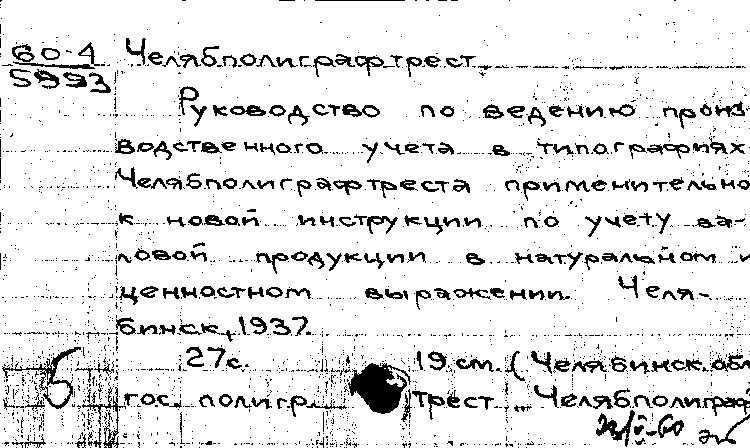 60-4 Челябполиграфтрест.
5993
Руководство по ведению произ-
водственного учета в типографиях
Челябполиграфтреста применительно
к новой инструкции по учету ва-
ловой продукции в натуральном и
ценностном выражении. Челя-
бинск, 1937.
27с. 19 см. (Челябинск. обл
5 гос. полигр. трест "Челябполиграф